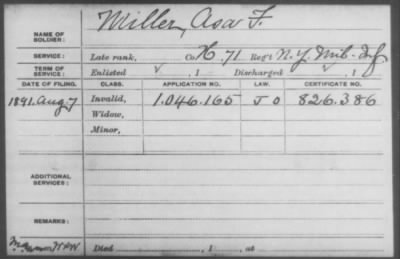 NAME OF SOLDIER: Miller, Asa F.
SERVICE: Late rank, Co. H. 71 Reg't N.Y. Mil. Inf
TERM OF SERVICE: Enlisted √, 1 Discharged √, 1
DATE OF FILING. CLASS. APPLICATION NO. LAW. CERTIFICATE NO.
1891. Aug 7 Invalid, 1.046.165 J O 826.386
Widow,
Minor,
ADDITIONAL SERVICES:
REMARKS:
Died , 1 , at